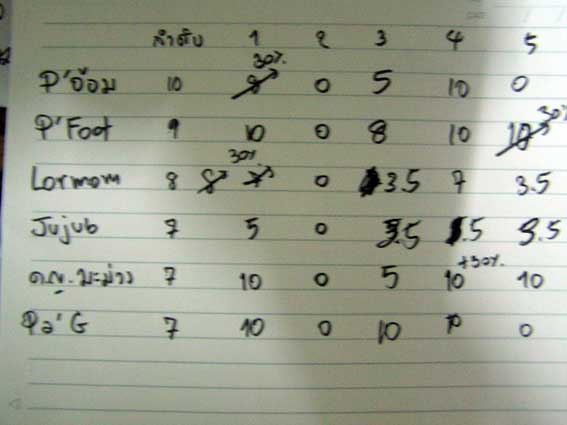 ลำดับ 1 2 3 4 5
30%
P'อ๊อม 10 8 0 5 10 0
30%
P'Foot 9 10 0 8 10 10
30%
Lormom 8 8 7 0 3.5 7 3.5
Jujub 7 5 0 3.5 .5 3.5
+30%
ด.ญ.มะม่วง 7 10 0 5 10 10
Pa'G 7 10 0 10 10 0